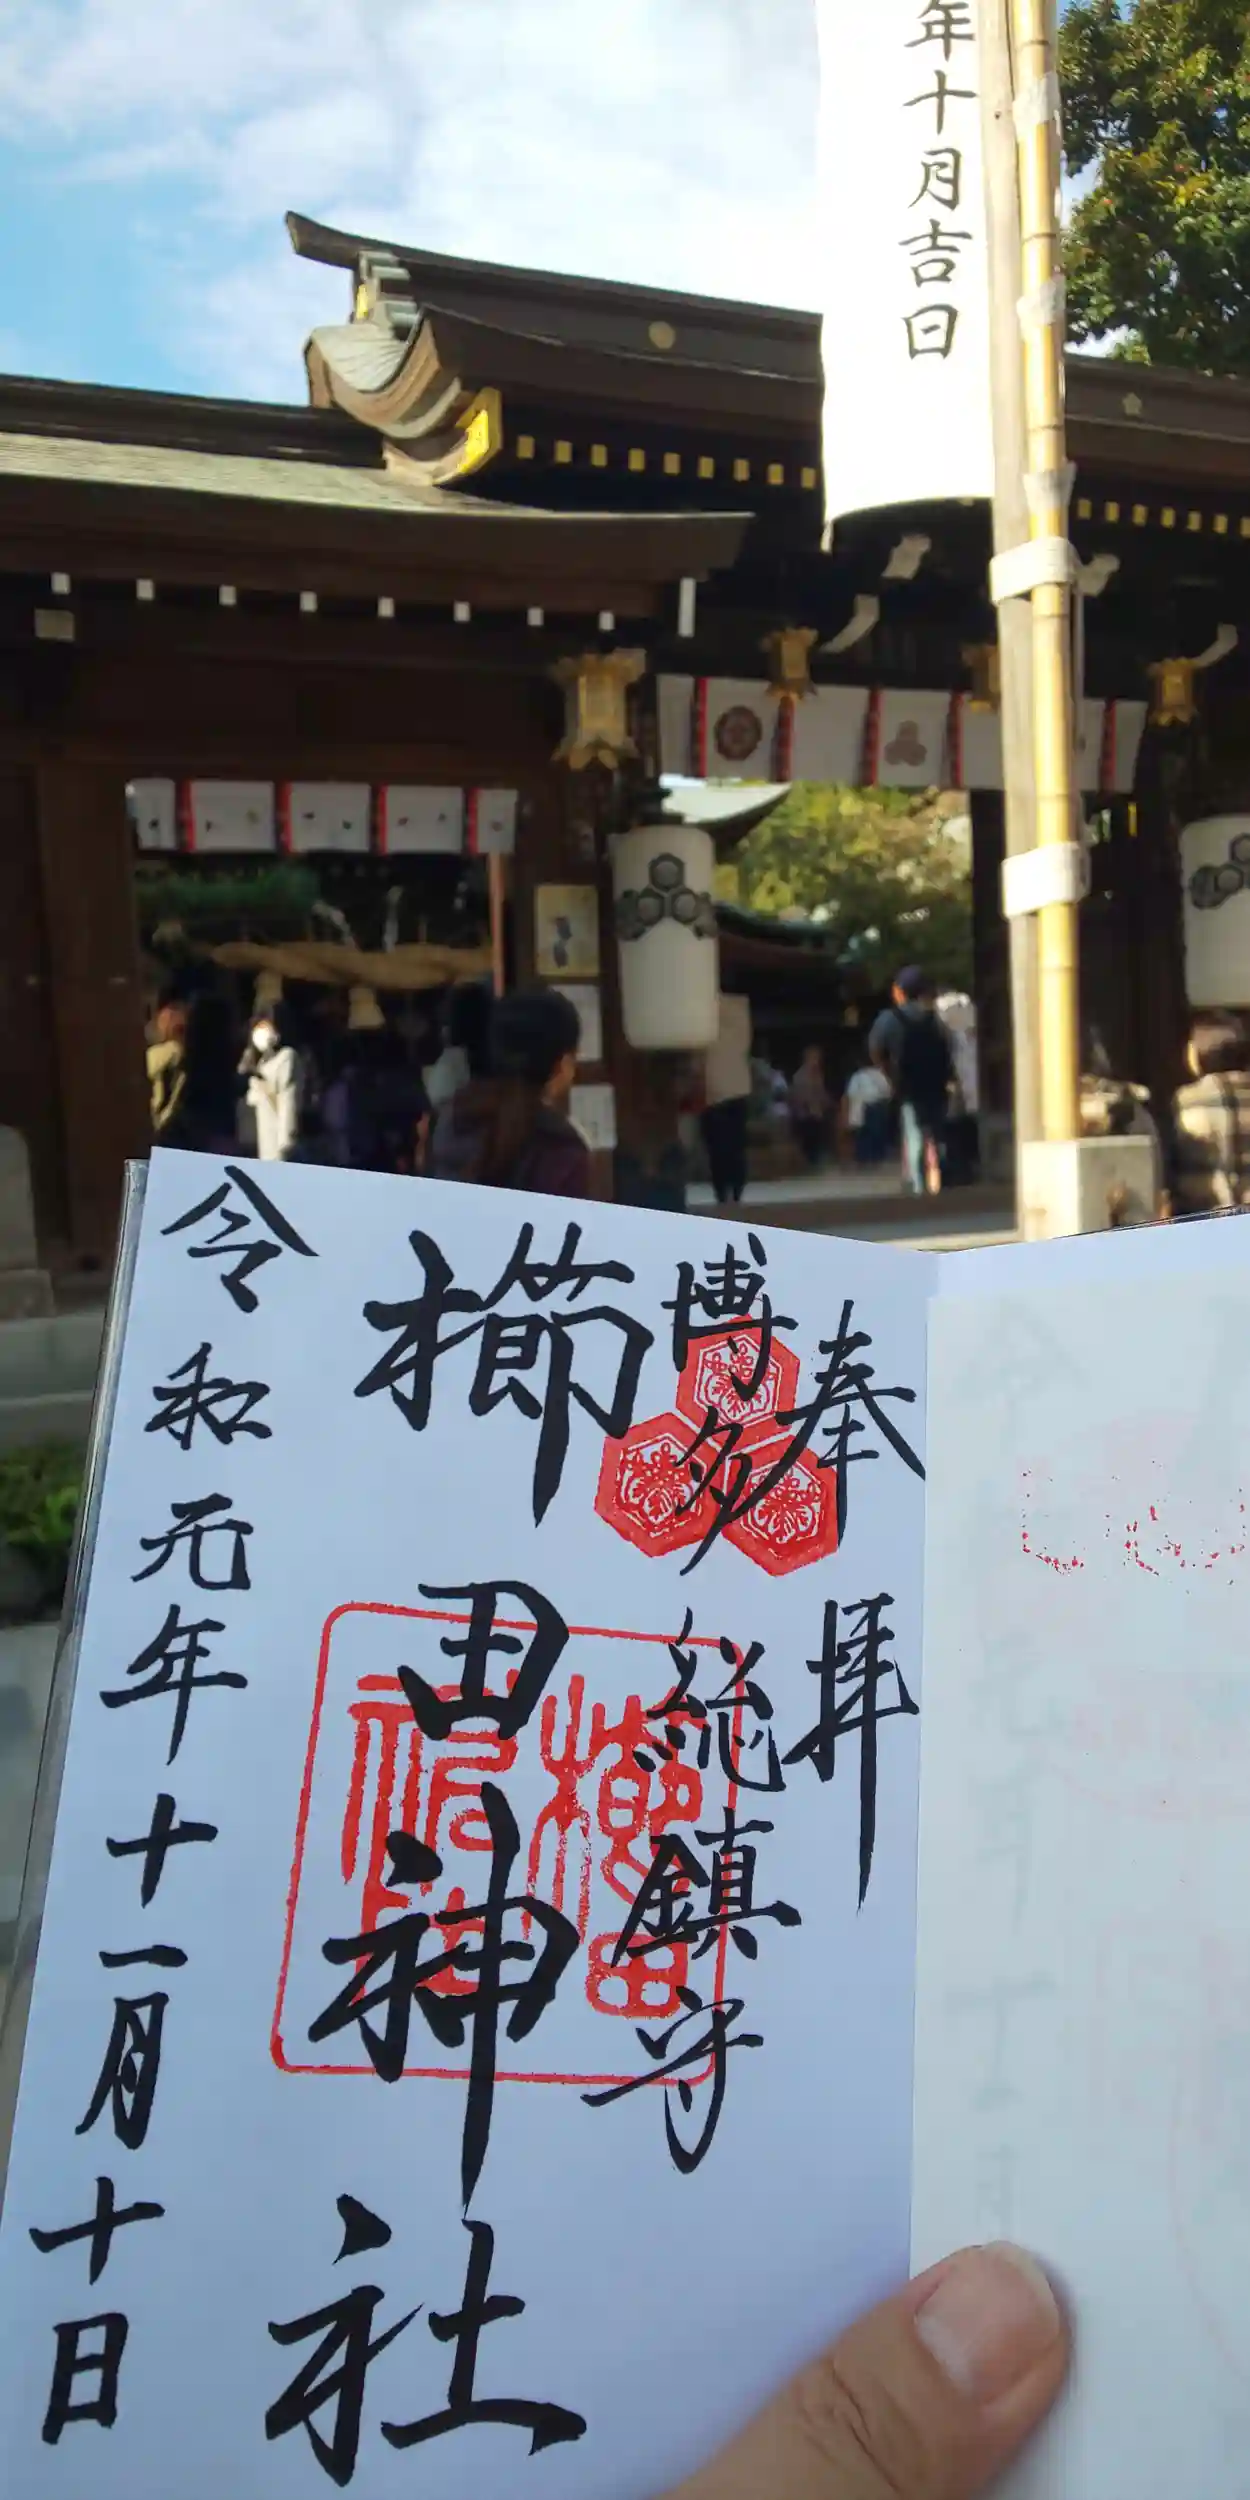 年十月吉日
奉拝
博多総鎮守
櫛田神社
令和元年十一月十日